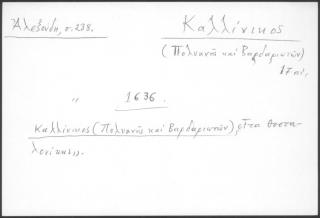 Ἀλεξούδη, σ. 238.
Καλλίνικος
(Πολυανῆς καὶ Βαρδαριωτῶν)
17 αἰ.
" 1636.
Καλλίνικος (Πολυανῆς καὶ Βαρδαριωτῶν), στὰ Θεσσα-
λονίκης.